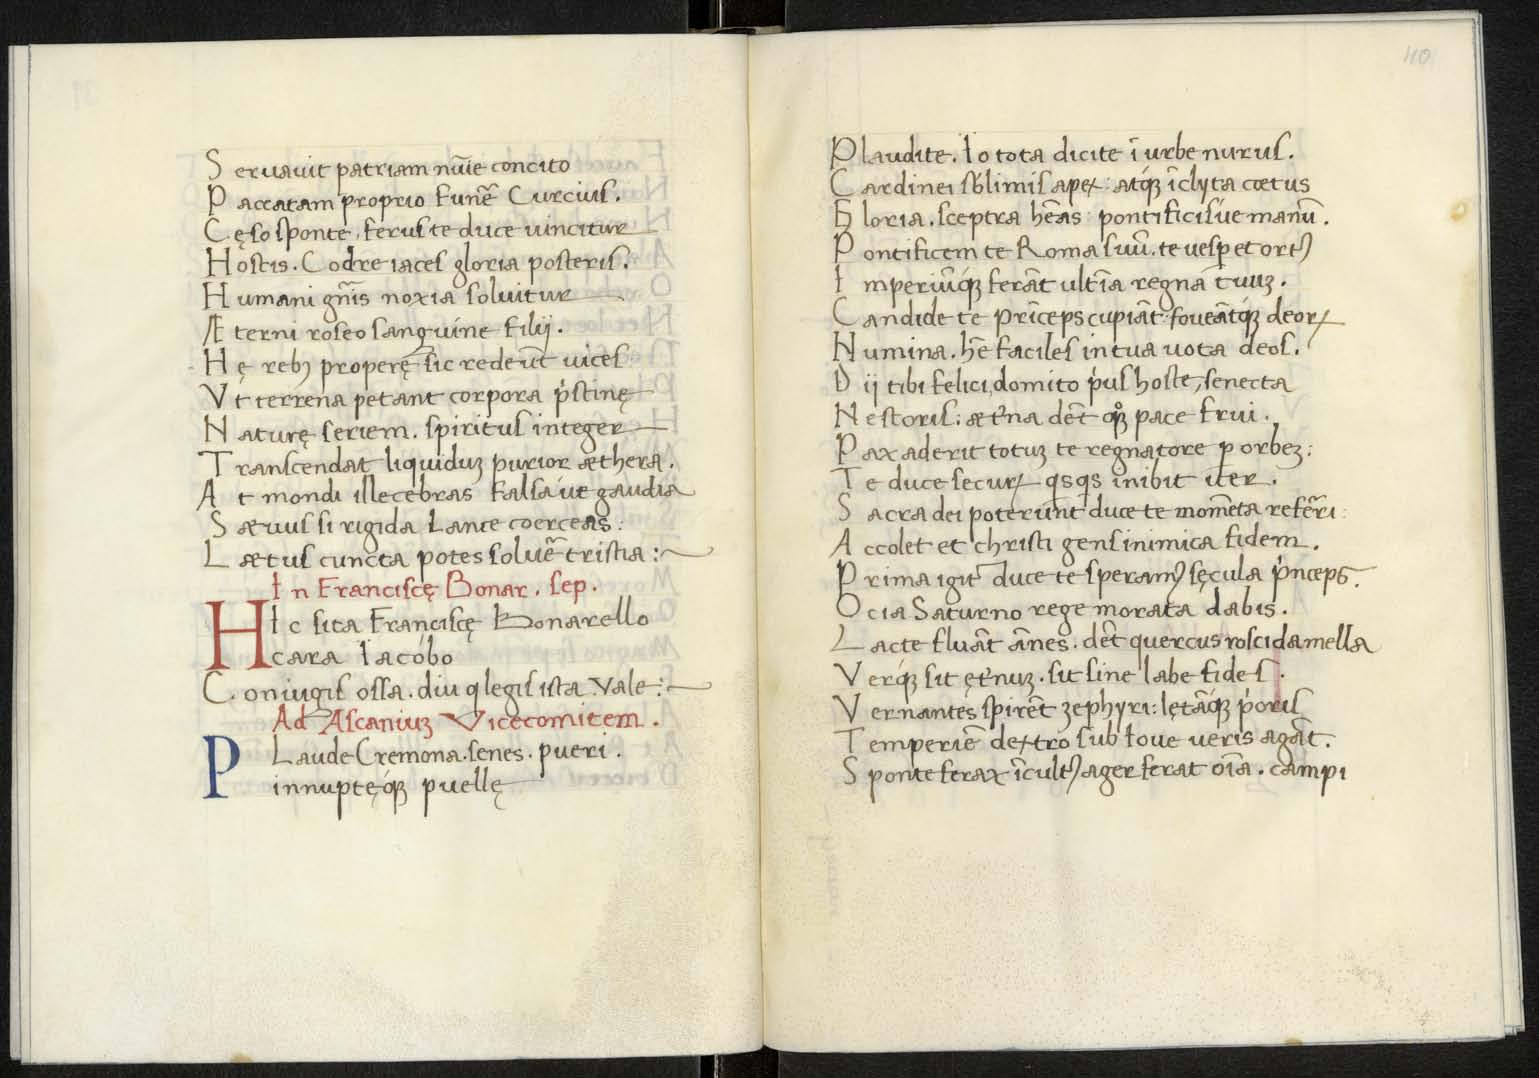 Seruauit patriam nūīe concito
Paccatam proprio funē᷒ Curcius.
Cęso sponte, ferus te duce uincitur
Hostis. Codre iaces gloria posteris.
Humani gn̄is noxia soluitur
Æterni roseo sanguine filij.
Hę rebꝫ properę sic redeūt uices
Vt terrena petant corpora p̍stinę
Naturę seriem. spiritus integer
Transcendat liquiduꝫ purior æthera.
At mondi illecebras falsa ue gaudia
Sæuus si rigida lance coerceas:
Lætus cuncta potes soluē᷒ tristia:~
In Franciscę Bonar. sep.
HIc sita Franciscę Bonarello
cara Iacobo
Coniugis ossa. diu q legis ista. Vale:~
Ad Ascaniuꝫ Vicecomitem.
PLaude Cremona. senes. pueri.
innuptęq́ꝫ puellę
40
Plaudite. Io tota dicite ī urbe nurus.
Cardinei sb̄limis apex: atq́ꝫ īclyta cœtus
Gloria. sceptra hēas pontificis ue manū.
Pontificem te Roma suū. te uesꝑ et ortꝰ
Imperiūq́ꝫ ferāt ultīa regna tuuꝫ.
Candide te prīceps cupiāt: foueātq́ꝫ deoꝝ
Numina. hē faciles in tua uota deos.
Dij tibi felici, domito p̍us hoste, senecta
Nestoris: ætn̄a dēt qꝫ pace frui.
Pax aderit totuꝫ te regnatore ꝑ orbeꝫ:
Te duce secuꝝ qs̍qs̍ inibit iter.
Sacra dei poterunt duce te momēta refēr̄i:
Accolet et christi gens inimica fidem.
Prima igit᷒ duce te speramꝰ sęcula p̍nceps.
Ocia Saturno rege morata dabis.
Lacte fluāt ānes. dēt quercus roscida mella
Verq́ꝫ sit ętn̄uꝫ. sit sine labe fides.
Vernantes spirēt zephyri: lętāq́ꝫ p̍oris
Temperiē dextro sub Ioue ueris agāt.
Sponte ferax īcultꝰ ager ferat oīa. campi